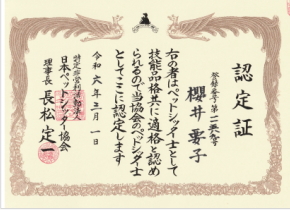 認定証
登録番号第一二五九号
櫻井要子
右の者はペットシッター士として
技能品格共に適格と認め
られるので当協会のペットシッター士
としてここに認定します
令和六年三月一日
特定非営利活動法人
日本ペットシッター協会
理事長 長松定一